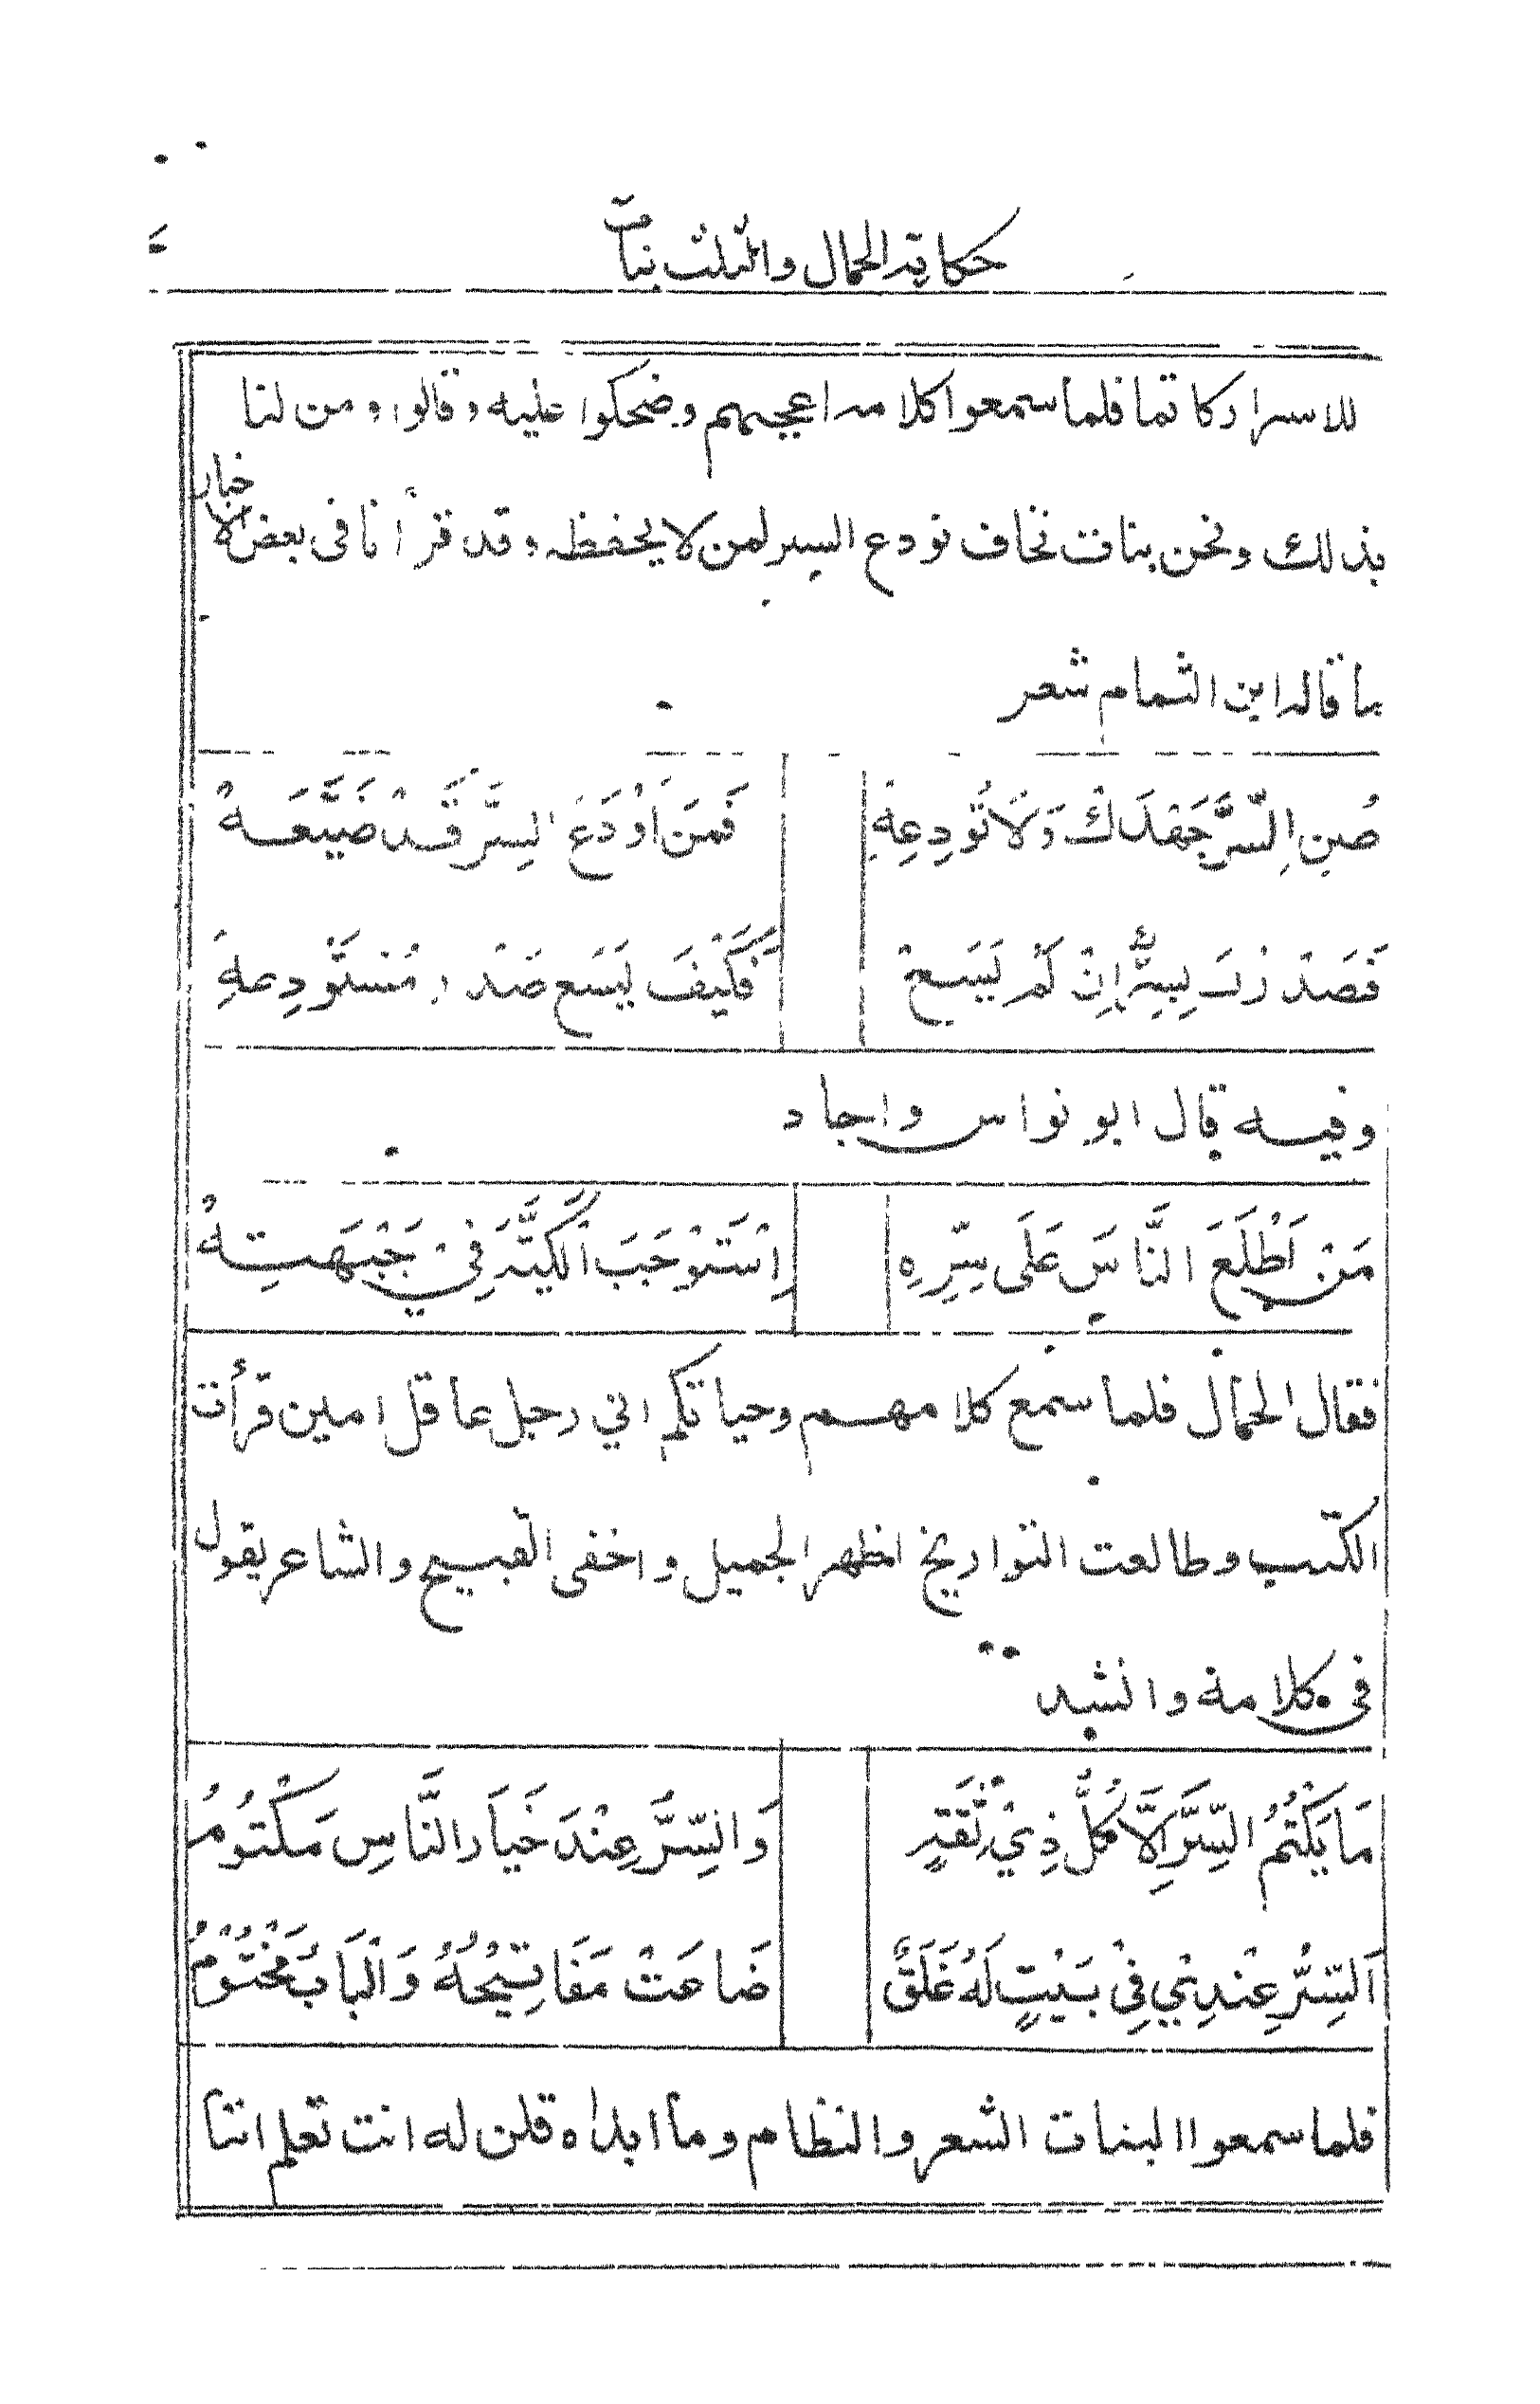 حكاية الحمال والثلث بنات
للاسرار كاتما فلما سمعوا كلامه اعجبهم وضحكوا عليه وقالوا ومن لنا
بذلك ونحن بنات نخاف نودع السر لمن لا يحفظه وقد قرأنا فى بعض الاخبار
ما قاله ابن الثمام شعر
صُنِ السِّرَّ جَهْدَكَ وَلَا تُودِعِهْ فَمَن اَوْدَعَ السِرَّ قَدْ ضَيَّعَهْ
فَصَدْرُكَ بِسِرِّكَ إِنْ لَمْ يَسَعْ فَكَيْفَ يَسَع صَدْرُ مُسْتَوْدِعِهِ
وفيه قال ابو نواس واجاد
مَنْ اَطْلَعَ النَّاسَ عَلَى سِرِّهِ اِسْتَوْجَبَ الْكَيَّةَ فِيْ جَبْهَتِهْ
فقال الحمال فلما سمع كلامهم وحياتكم اني رجل عاقل امين قرأت
الكتب وطالعت التواريخ اظهر الجميل واخفى القبيح والشاعر يقول
فى كلامه وانشد
مَا يَكْتُمُ السِّرَّ إِلَّا كُلُّ ذِيْ ثِقَةٍ وَالسِّرُّ عِنْدَ خَيَارِ النَّاسِ مَكْتُومُ
اَلسِّرُّ عِنْدِيْ فِيْ بَيْتٍ لَهُ غَلَقٌ ضَاعَتْ مَفَاتِيْحُهُ وَالْبَابُ مَخْتُوْمُ
فلما سمعوا البنات الشعر والنظام وما ابداه قلن له انت تعلم اننا